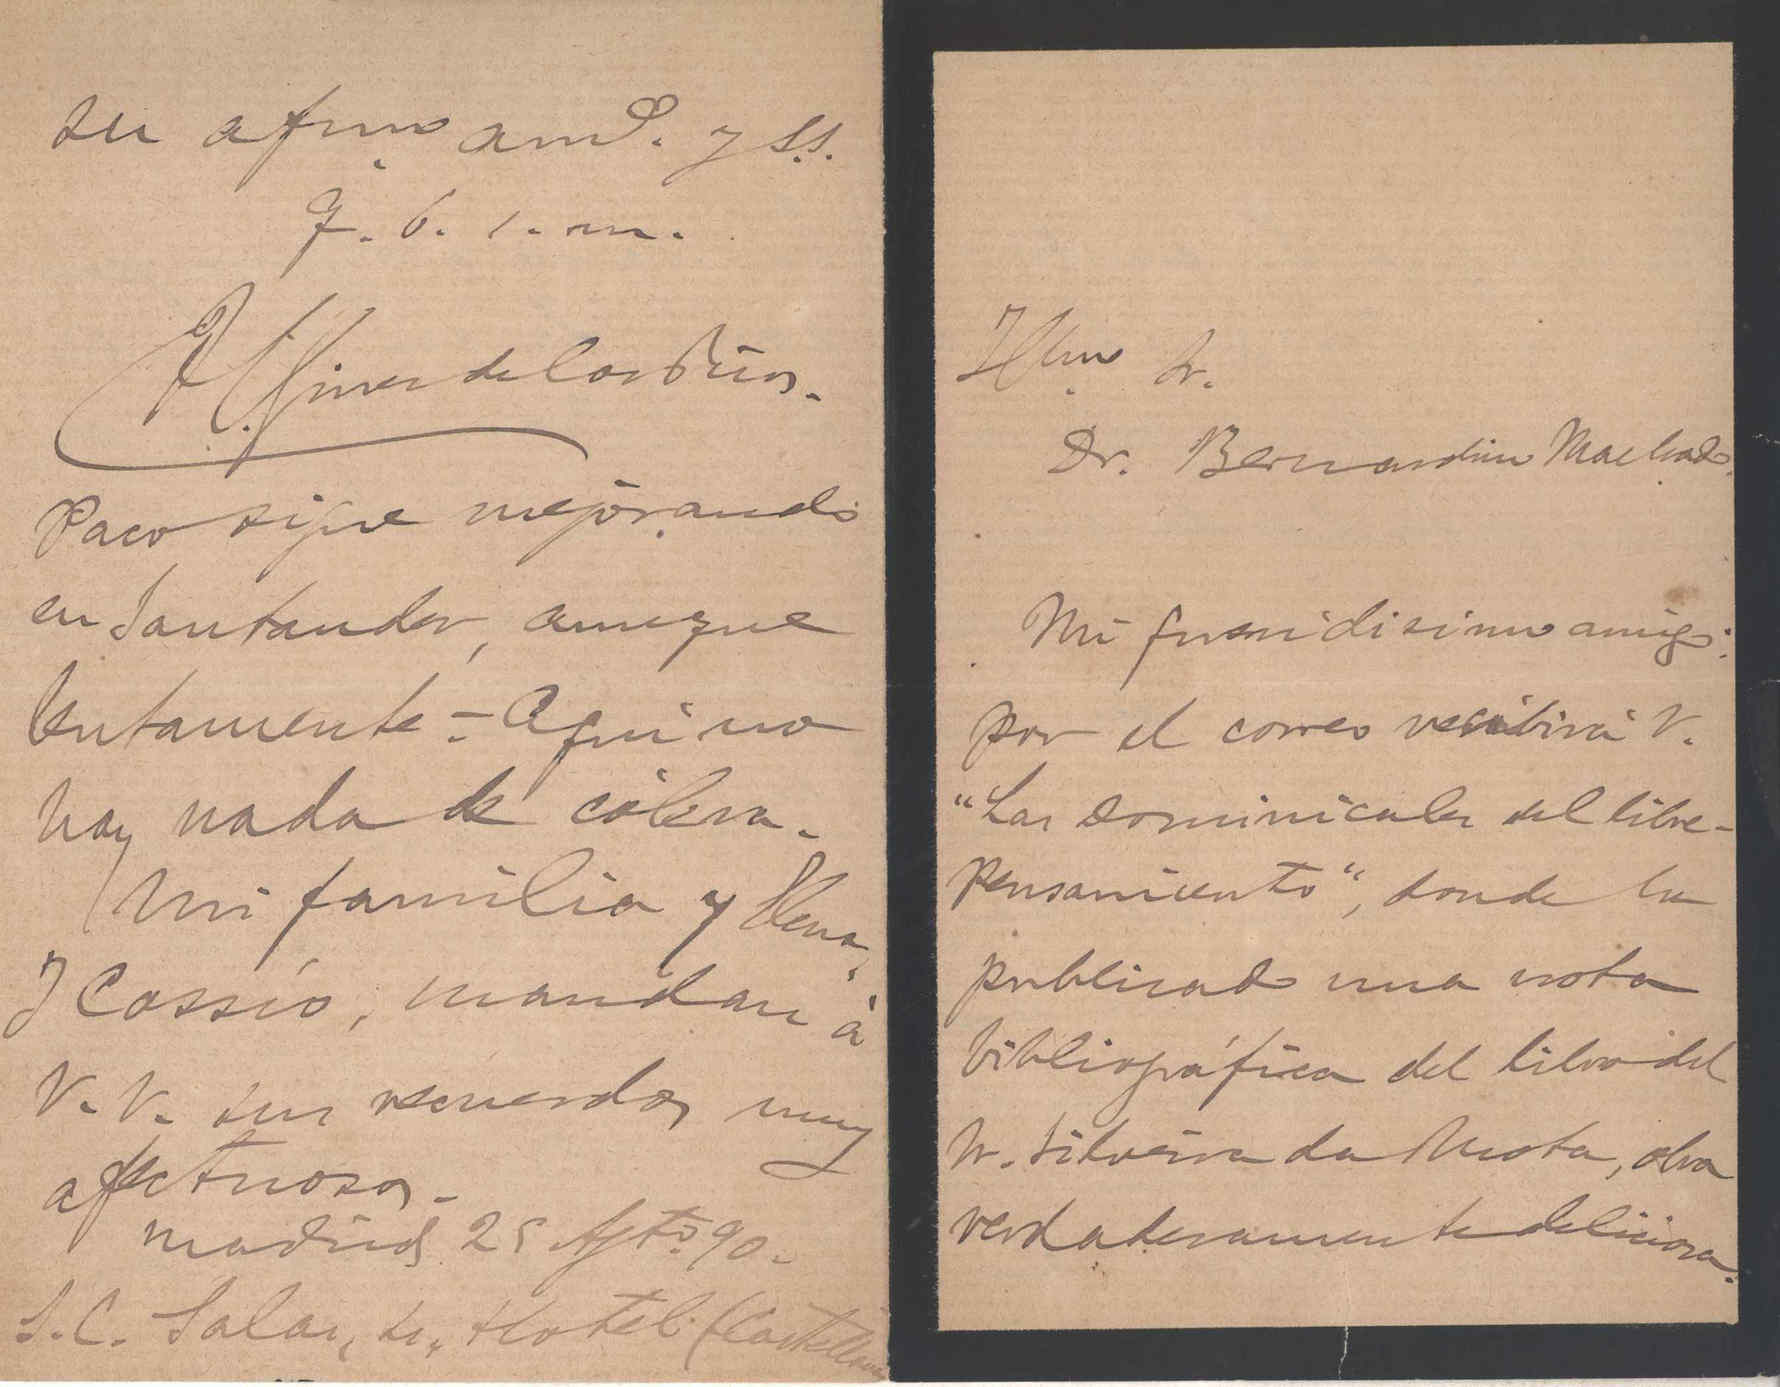 su afmo amº. y s.s.
q. b. s. m.
H. Giner de los Rios.
Paco sigue mejorando
en Santander, aunque
lentamente = Aqui no
hay nada de cólera.
Mi familia y Elena,
y Cossío, mandan á
V. V. sus recuerdos muy
afectuosos.
Madrid 25 Agtº 90.
S. C. Salas, Hotel (Castellana
Ilmo Sr.
Dr. Bernardino Machado.
Mi queridisimo amigo:
por el correo recibirá V.
"Las Dominicales del libre-
pensamiento", donde he
publicado una nota
bibliográfica del libro del
Sr. Silveira da Mota, obra
verdaderamente deliciosa.